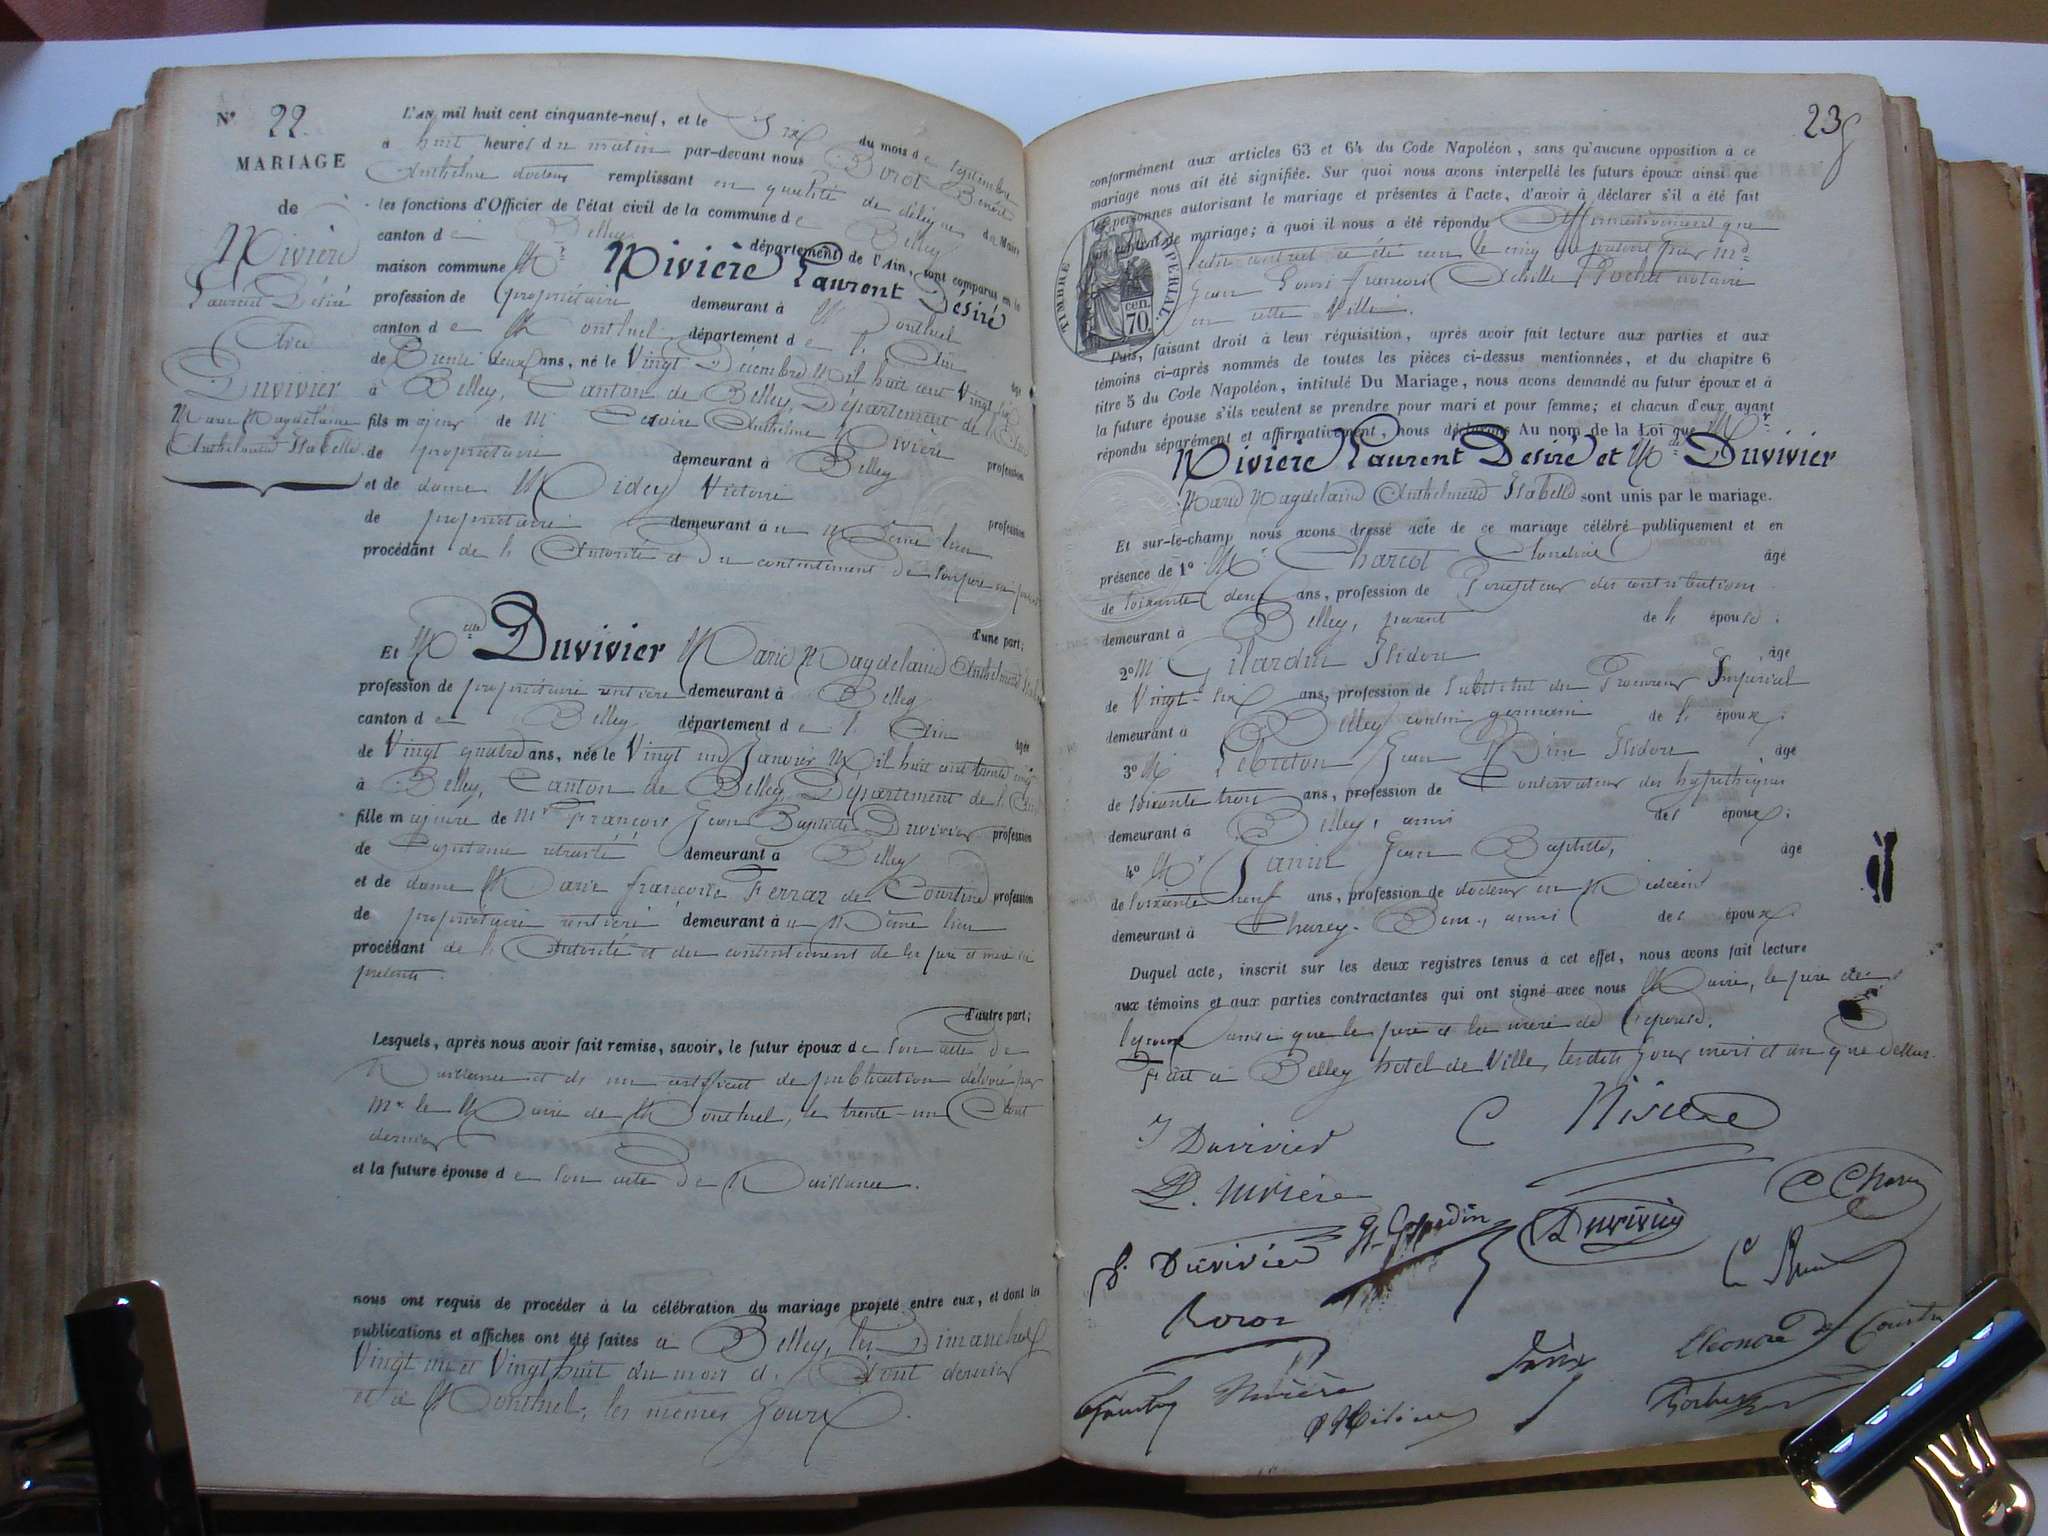 N° 22
MARIAGE
de
Nivière
Laurent Désiré
Avec
Duvivier
Marie Magdelaine
Anthelmette Isabelle.
L'AN mil huit cent cinquante-neuf, et le Six du mois de Septembre
à huit heures du matin par-devant nous
Anthelme docteur remplissant en qualité de délégué du Maire
les fonctions d'Officier de l'état civil de la commune de Belley
canton de Belley département de l'Ain, sont comparus en la
maison commune Mr Nivière Laurent Désiré
profession de propriétaire demeurant à Montluel
canton de Montluel département de l'Ain âgé
de Trente deux ans, né le Vingt Décembre Mil huit cent Vingt six
à Belley, Canton de Belley, Département de l'Ain
fils majeur de Mr Anthelme Nivière profession
de propriétaire demeurant à Belley
et de dame Midey Victoire profession
de propriétaire demeurant à u Même lieu
procédant de l'Autorité et du contentement de son père
d'une part;
Et Melle Duvivier Marie Magdelaine Anthelmette Isabelle
profession de propriétaire rentière demeurant à Belley
canton de Belley département de l'Ain âgée
de Vingt quatre ans, née le Vingt un Janvier Mil huit cent trente cinq
à Belley, Canton de Belley, Département de l'Ain
fille majeure de Mr François Jean Baptiste Duvivier profession
de Capitaine retraité demeurant à Belley
et de dame Marie françoise Ferraz de Courtine profession
de propriétaire rentière demeurant à u Même lieu
procédant de l'Autorité et du contentement de ses père et mère ici
présents.
d'autre part;
Lesquels, après nous avoir fait remise, savoir, le futur époux de son acte de
Naissance et de un certificat de publication délivré par
Mr le Maire de Montluel, le trente-un Août
dernier
et la future épouse de son acte de Naissance.
nous ont requis de procéder à la célébration du mariage projeté entre eux, et dont les
publications et affiches ont été faites à Belley, les Dimanches
Vingt un et Vingt huit du mois d'Août dernier
et à Montluel, les mêmes Jours.
23
conformément aux articles 63 et 64 du Code Napoléon, sans qu'aucune opposition à ce
mariage nous ait été signifiée. Sur quoi nous avons interpellé les futurs époux ainsi que
les personnes autorisant le mariage et présentes à l'acte, d'avoir à déclarer s'il a été fait
contrat de mariage; à quoi il nous a été répondu Affirmativement que
ledit contrat a été reçu le cinq du présent par Me
Jean Louis François Achille Rochet notaire
en cette Ville.
TIMBRE IMPÉRIAL.
70 cen.
Puis, faisant droit à leur réquisition, après avoir fait lecture aux parties et aux
témoins ci-après nommés de toutes les pièces ci-dessus mentionnées, et du chapitre 6
titre 5 du Code Napoléon, intitulé Du Mariage, nous avons demandé au futur époux et à
la future épouse s'ils veulent se prendre pour mari et pour femme; et chacun d'eux ayant
répondu séparément et affirmativement, nous déclarons Au nom de la Loi que Mr
Nivière Laurent Desiré et Melle Duvivier
Marie Magdelaine Anthelmette Isabelle sont unis par le mariage.
Et sur-le-champ nous avons dressé acte de ce mariage célébré publiquement et en
présence de 1° Mr Charcot âgé
de soixante deux ans, profession de Percepteur des contributions
demeurant à Belley, parent de l'épouse;
2° Mr Gilardin Isidore âgé
de Vingt-six ans, profession de Substitut du Procureur Impérial
demeurant à Belley cousin germain de l'époux;
3° Mr Lebreton Jean René Isidore âgé
de soixante trois ans, profession de Conservateur des hypothèques
demeurant à Belley, ami des époux;
4° Mr Janin Jean Baptiste, âgé
de soixante neuf ans, profession de docteur en Médecine
demeurant à Charey-Dom., ami des époux.
Duquel acte, inscrit sur les deux registres tenus à cet effet, nous avons fait lecture
aux témoins et aux parties contractantes qui ont signé avec nous Maire, le père de
l'époux ainsi que le père et la mère de l'épouse.
Fait à Belley hotel de Ville, lesdits Jour mois et an que dessus.
I Duvivier
C Nivière
D. Nivière
Duvivier
Gilardin
Duvivier
Nivière
Eléonore de